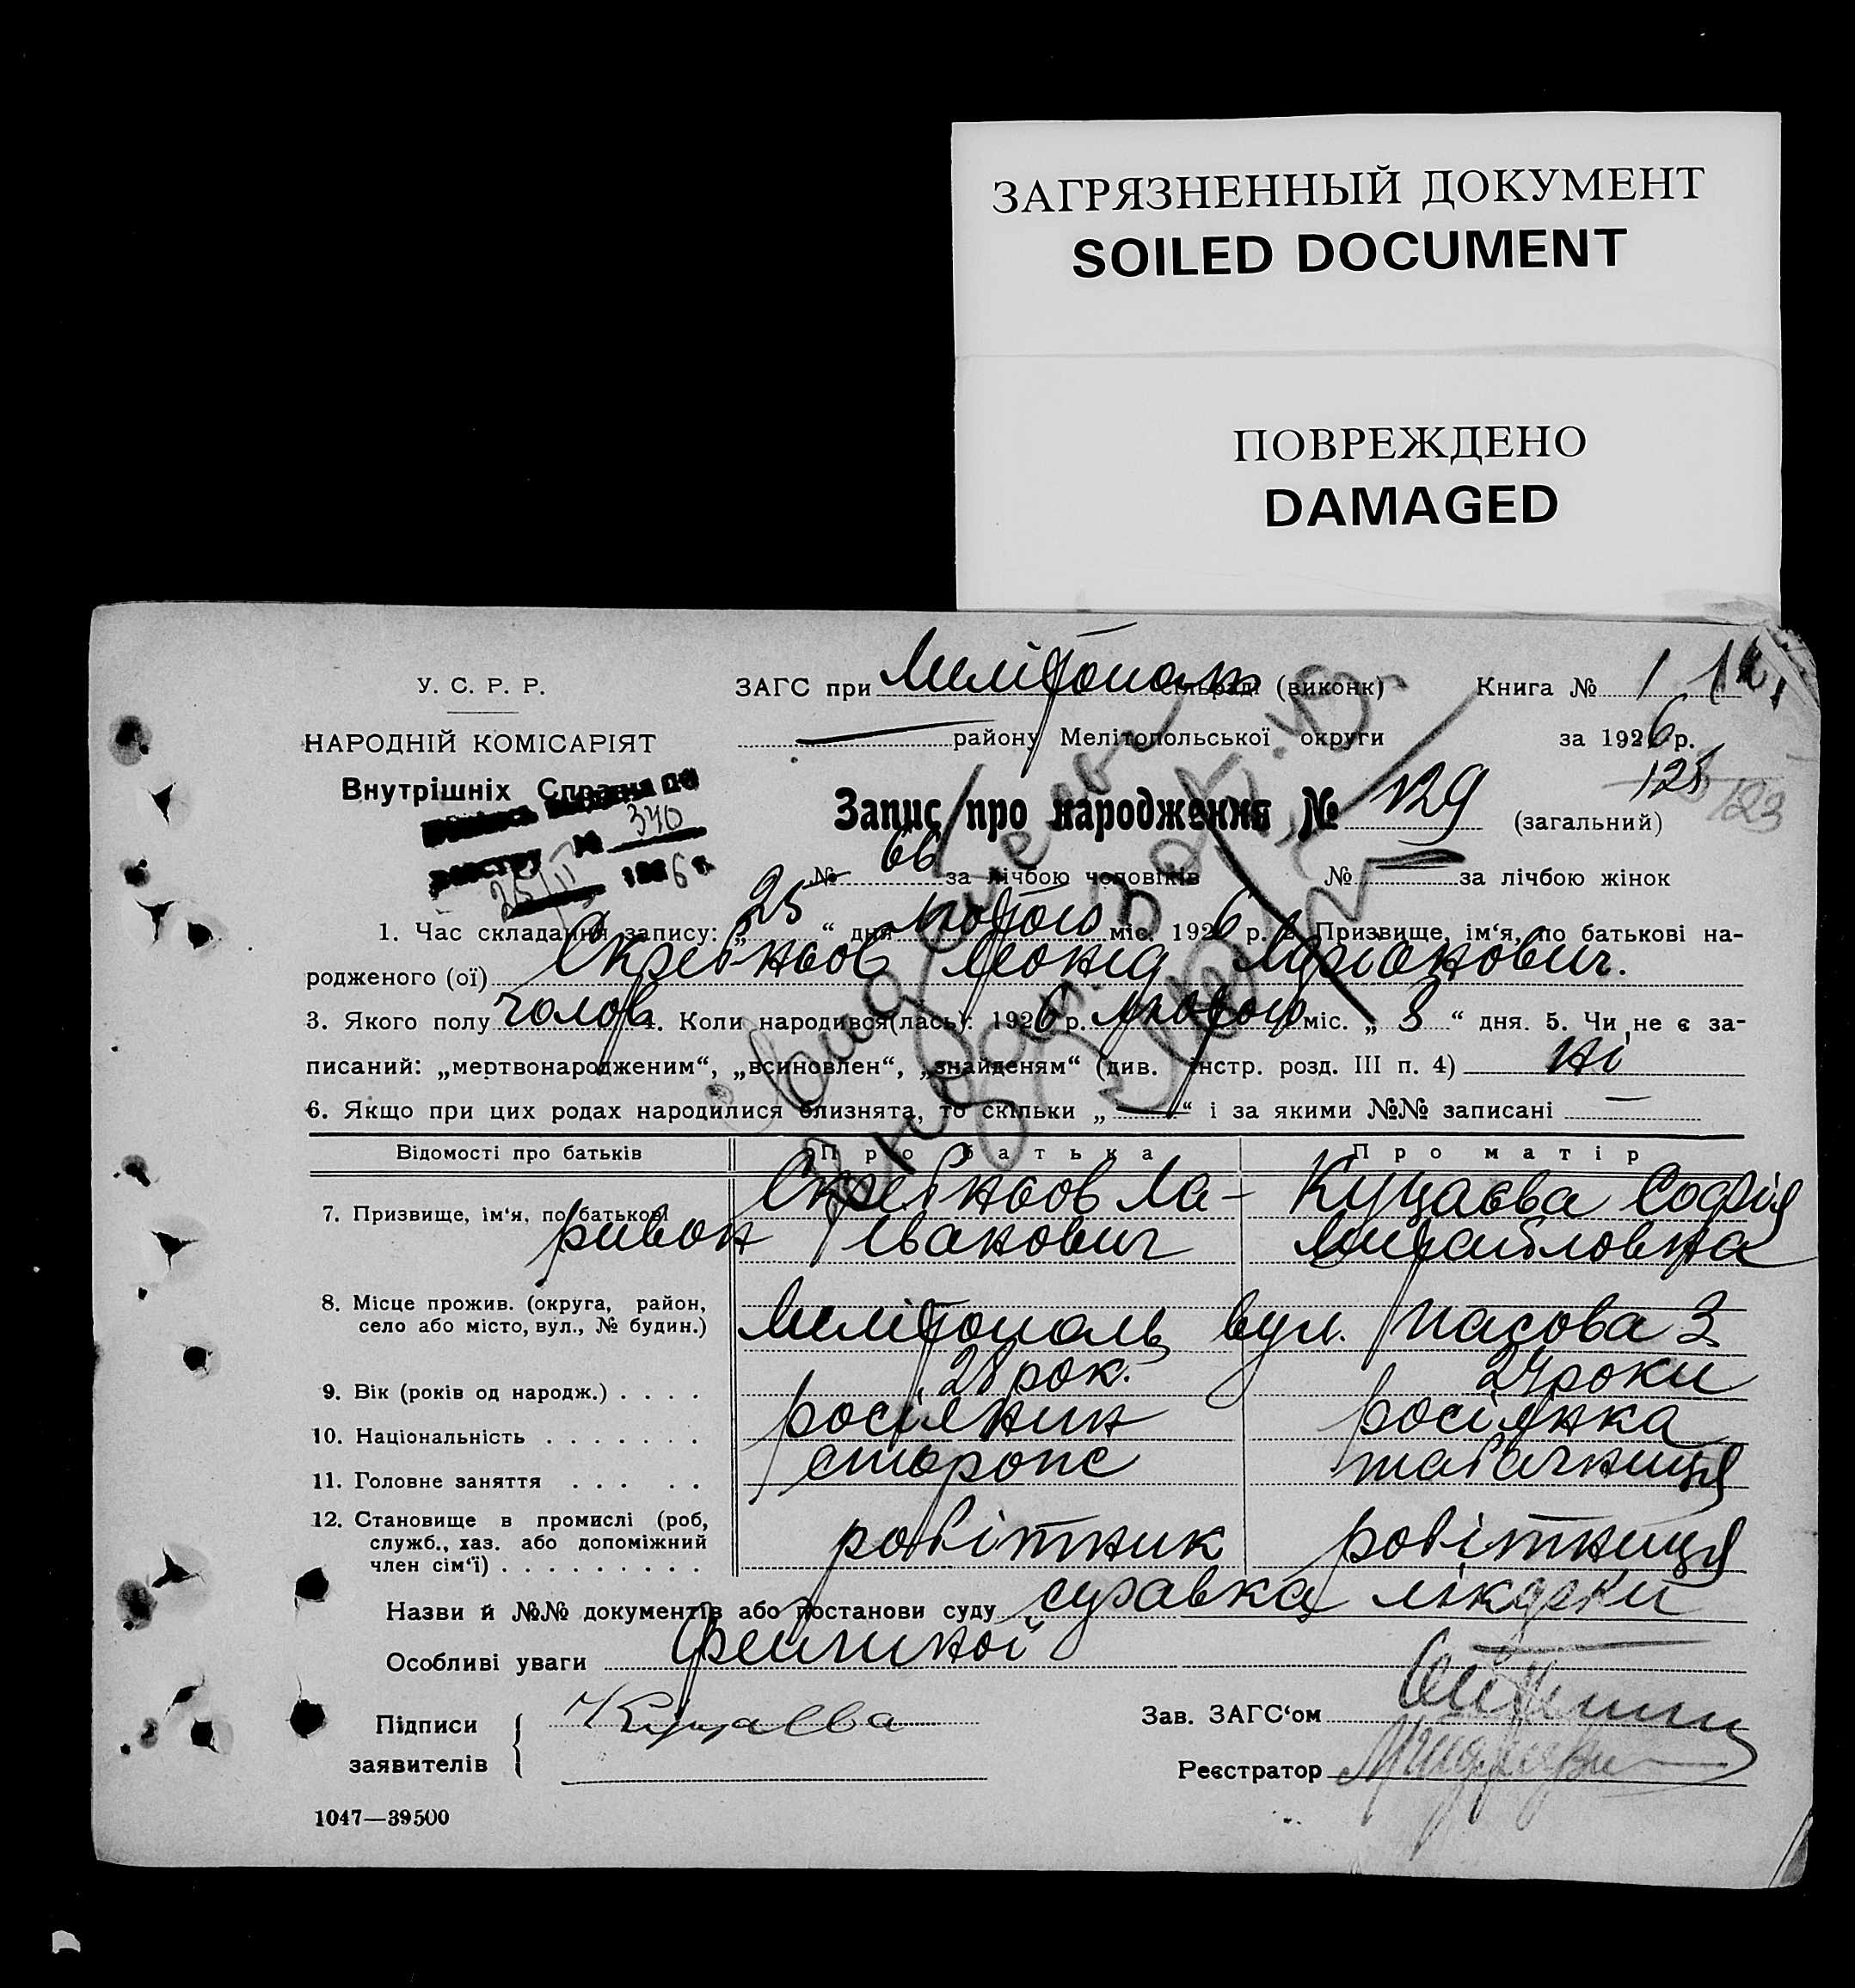 ЗАГРЯЗНЕННЫЙ ДОКУМЕНТ
SOILED DOCUMENT
ПОВРЕЖДЕНО
DAMAGED
У. С. Р. Р.
НАРОДНІЙ КОМІСАРІЯТ
Внутрішніх Справ
№ 340
1926 г.
ЗАГС при Мелітополь сільраді (виконк)
району Мелітопольської округи
Книга № 1
за 1926 р.
Запис про народження № 129 (загальний)
125
123
№ 66 за лічбою чоловіків № — за лічбою жінок
1. Час складання запису: „25“ дня лютого міс. 1926 р. 2. Призвище, ім‘я, по батькові на-
родженого (ої) Скребньов Леонід
3. Якого полу чолов 4. Коли народився(лась): 1926 р. лютого міс. „3“ дня. 5. Чи не є за-
писаний: „мертвонародженим“, „всиновлен“, „знайденям“ (див. інстр. розд. III п. 4) ні
6. Якщо при цих родах народилися близнята, то скільки „—“ і за якими №№ записані —
Відомості про батьків Про батька Про матір
7. Призвище, ім‘я, по батькові Скребньов Ла- Куцаєва Софія
ривон Іванович Михайловна
8. Місце прожив. (округа, район,
село або місто, вул., № будин.) Мелітополь вул. 3
9. Вік (років од народж.) . . . . 28 рок. 24 роки
10. Національність . . . . . . . росіянин росіянка
11. Головне заняття . . . . . сторож табачниця
12. Становище в промислі (роб,
служб., хаз. або допоміжний
член сім‘ї) . . . . . . . . . робітник робітниця
Назви й №№ документів або постанови суду справка лікарки
Особливі уваги
Підписи
заявителів
Куцаева
Зав. ЗАГС‘ом
Реєстратор
1047—39500